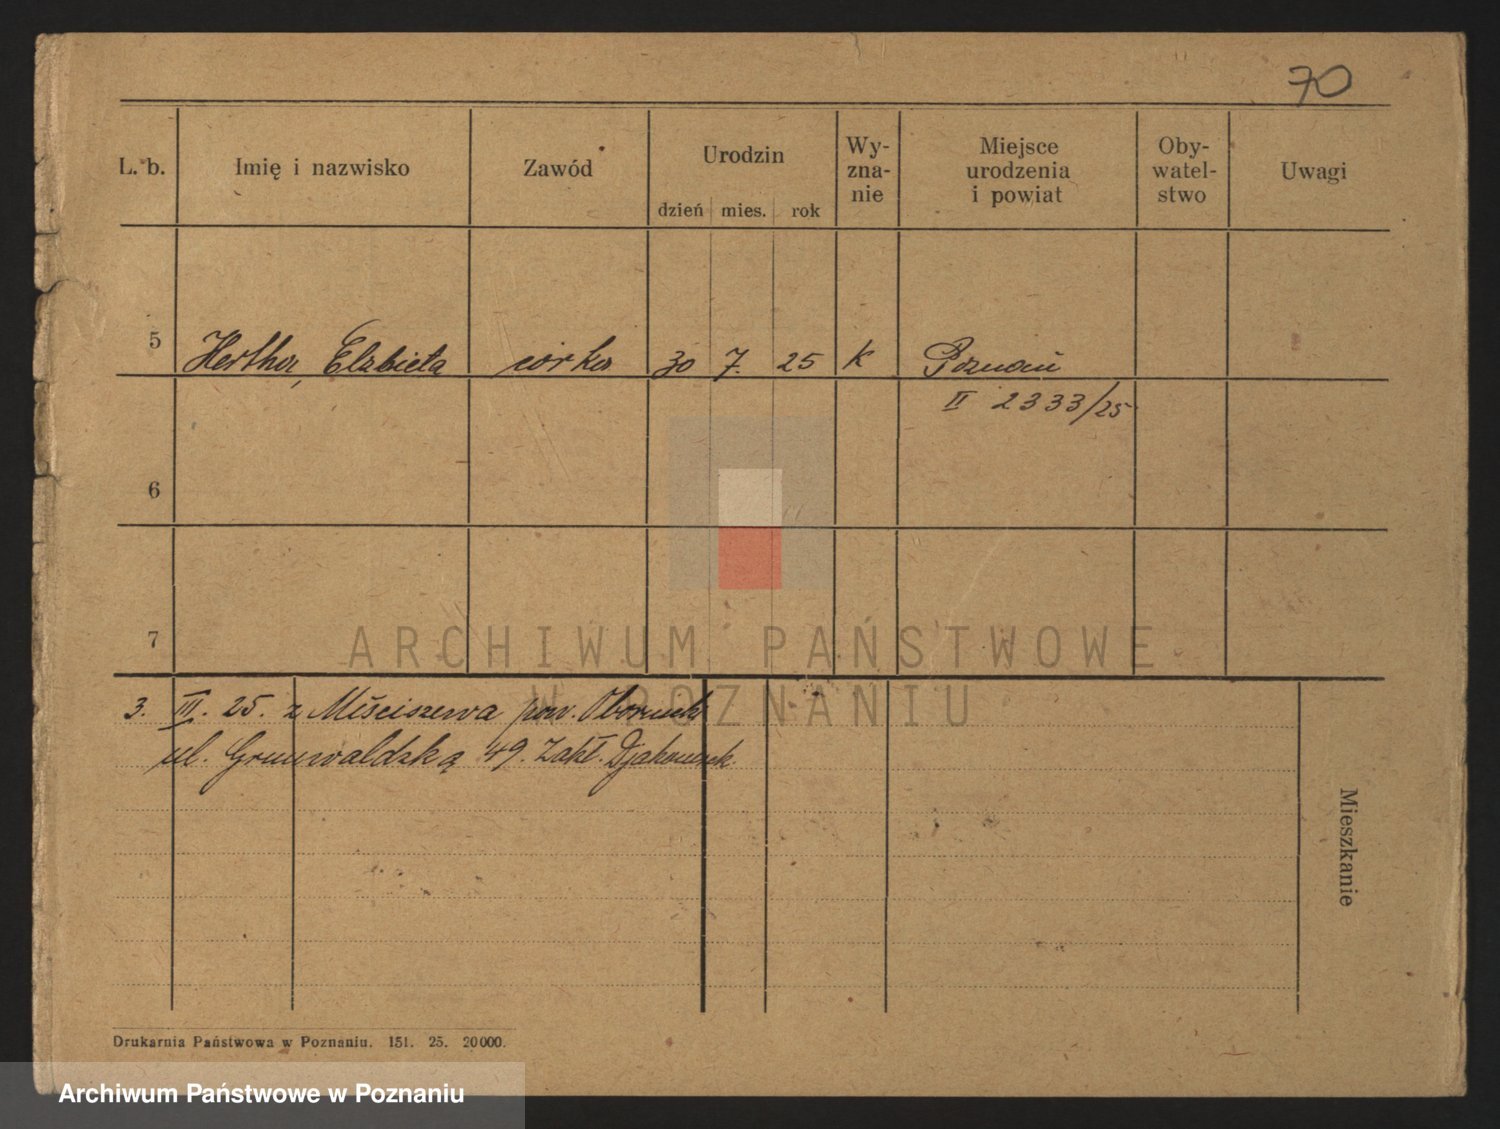 70
L. b.
Imię i nazwisko
Zawód
Urodzin
dzień mies. rok
Wy-
zna-
nie
Miejsce
urodzenia
i powiat
Oby-
watel-
stwo
Uwagi
5 Hertha, Elzbieta córka 30 7. 25 k Poznań
II 2333/25
6
7
3. III. 25. z Miściszewa pow. Obornicki
ul. Grunwaldzką 49. Zakł. Djakonisek.
Mieszkanie
ARCHIWUM PAŃSTWOWE
W POZNANIU
Drukarnia Państwowa w Poznaniu. 151. 25. 20000.
Archiwum Państwowe w Poznaniu